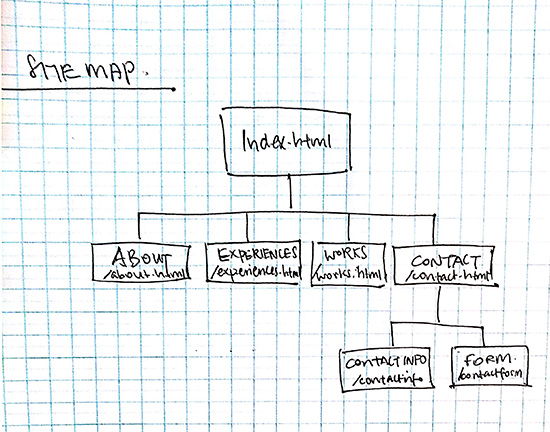 SITE MAP.
Index.html
ABOUT
/about.html
EXPERIENCES
/experiences.html
WORKS
/works.html
CONTACT
/contact.html
CONTACT INFO
/contactinfo
FORM.
/contactform